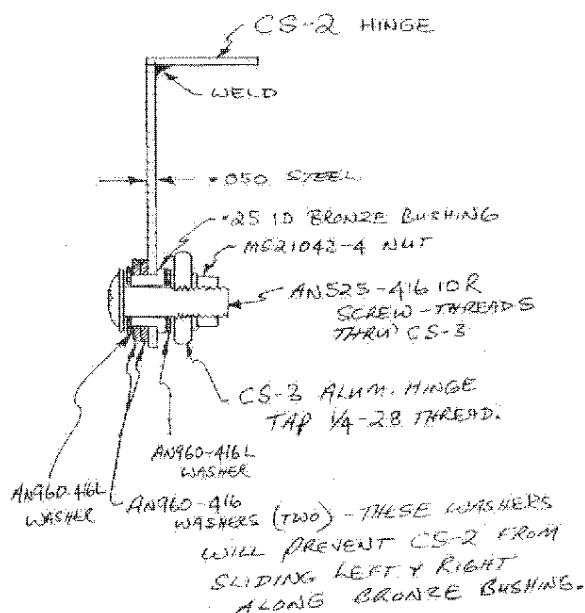 CS-2 HINGE
WELD
.050 STEEL
.25 ID BRONZE BUSHING
MS21042-4 NUT
AN525-416 10R
SCREW-THREADS
THRU CS-3
CS-3 ALUM. HINGE
TAP 1/4-28 THREAD.
AN960-416L
WASHER
AN960-416L
WASHER
AN960-416
WASHERS (TWO) - THESE WASHERS
WILL PREVENT CS-2 FROM
SLIDING LEFT & RIGHT
ALONG BRONZE BUSHING.